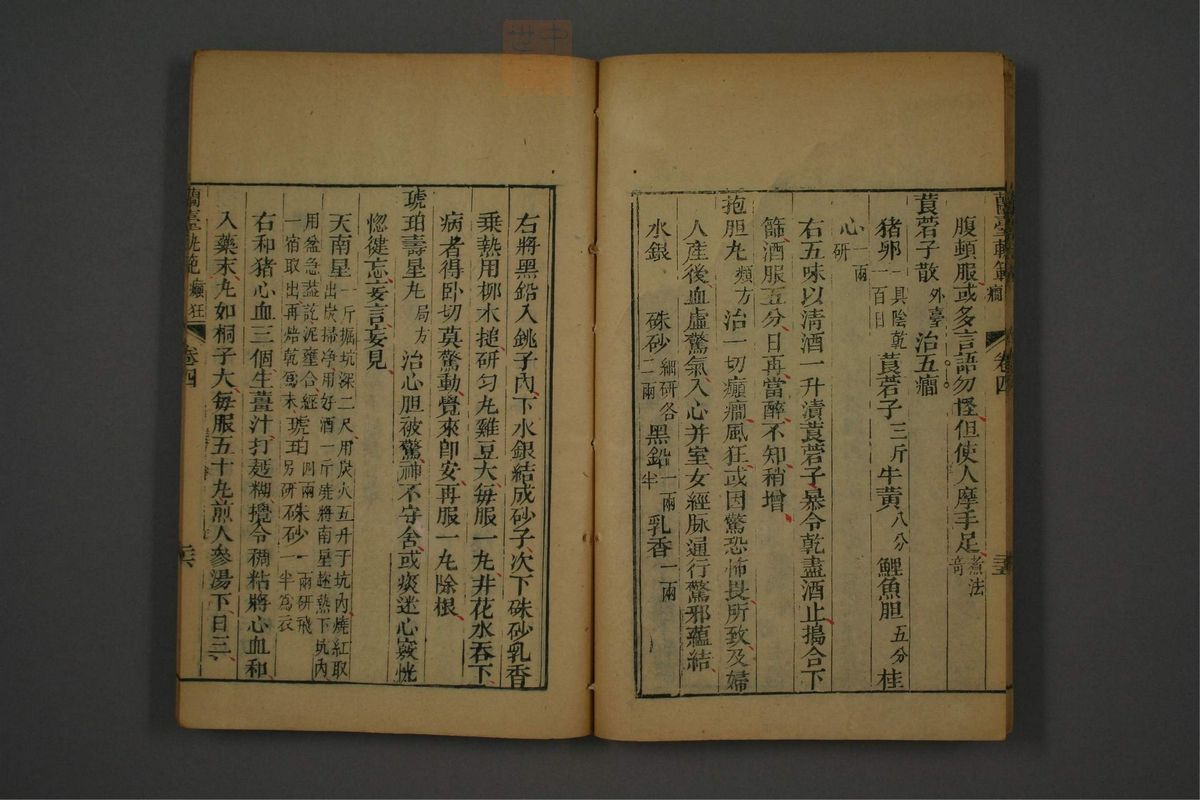 腹頓服或多言語勿怪但使人摩手足煮法奇
莨菪子散外臺治五癎
猪卵一具陰乾百日莨菪子三斤牛黃八分鯉魚胆五分桂
心一兩研
右五味以清酒一升漬莨菪子暴令乾盡酒止搗合下
篩酒服五分日再當醉不知稍增
抱胆丸類方治一切癲癎風狂或因驚恐怖畏所致及婦
人產後血虛驚氣入心并室女經脉通行驚邪蘊結
水銀 硃砂細研各二兩黑鉛一兩半乳香一兩
蘭臺軌範 癲 卷四 三五
右將黑鉛入銚子內下水銀結成砂子次下硃砂乳香
乘熱用柳木搥研勻丸雞豆大每服一丸井花水吞下
病者得卧切莫驚動覺來卽安再服一丸除根
琥珀壽星丸局方治心胆被驚神不守舍或痰迷心竅恍
惚健忘妄言妄見
天南星一斤掘坑深二尺用炭火五斤于坑內燒紅取出炭掃净用好酒一斤澆將南星趂熱下坑內
用盆急蓋訖泥壅合經一宿取出再焙乾爲末琥珀四兩另研硃砂一兩研飛一半爲衣
右和猪心血三個生薑汁打麫糊攪令稠粘將心血和
入藥末丸如桐子大每服五十丸煎人參湯下日三
蘭臺軌範 癲狂 卷四 三六